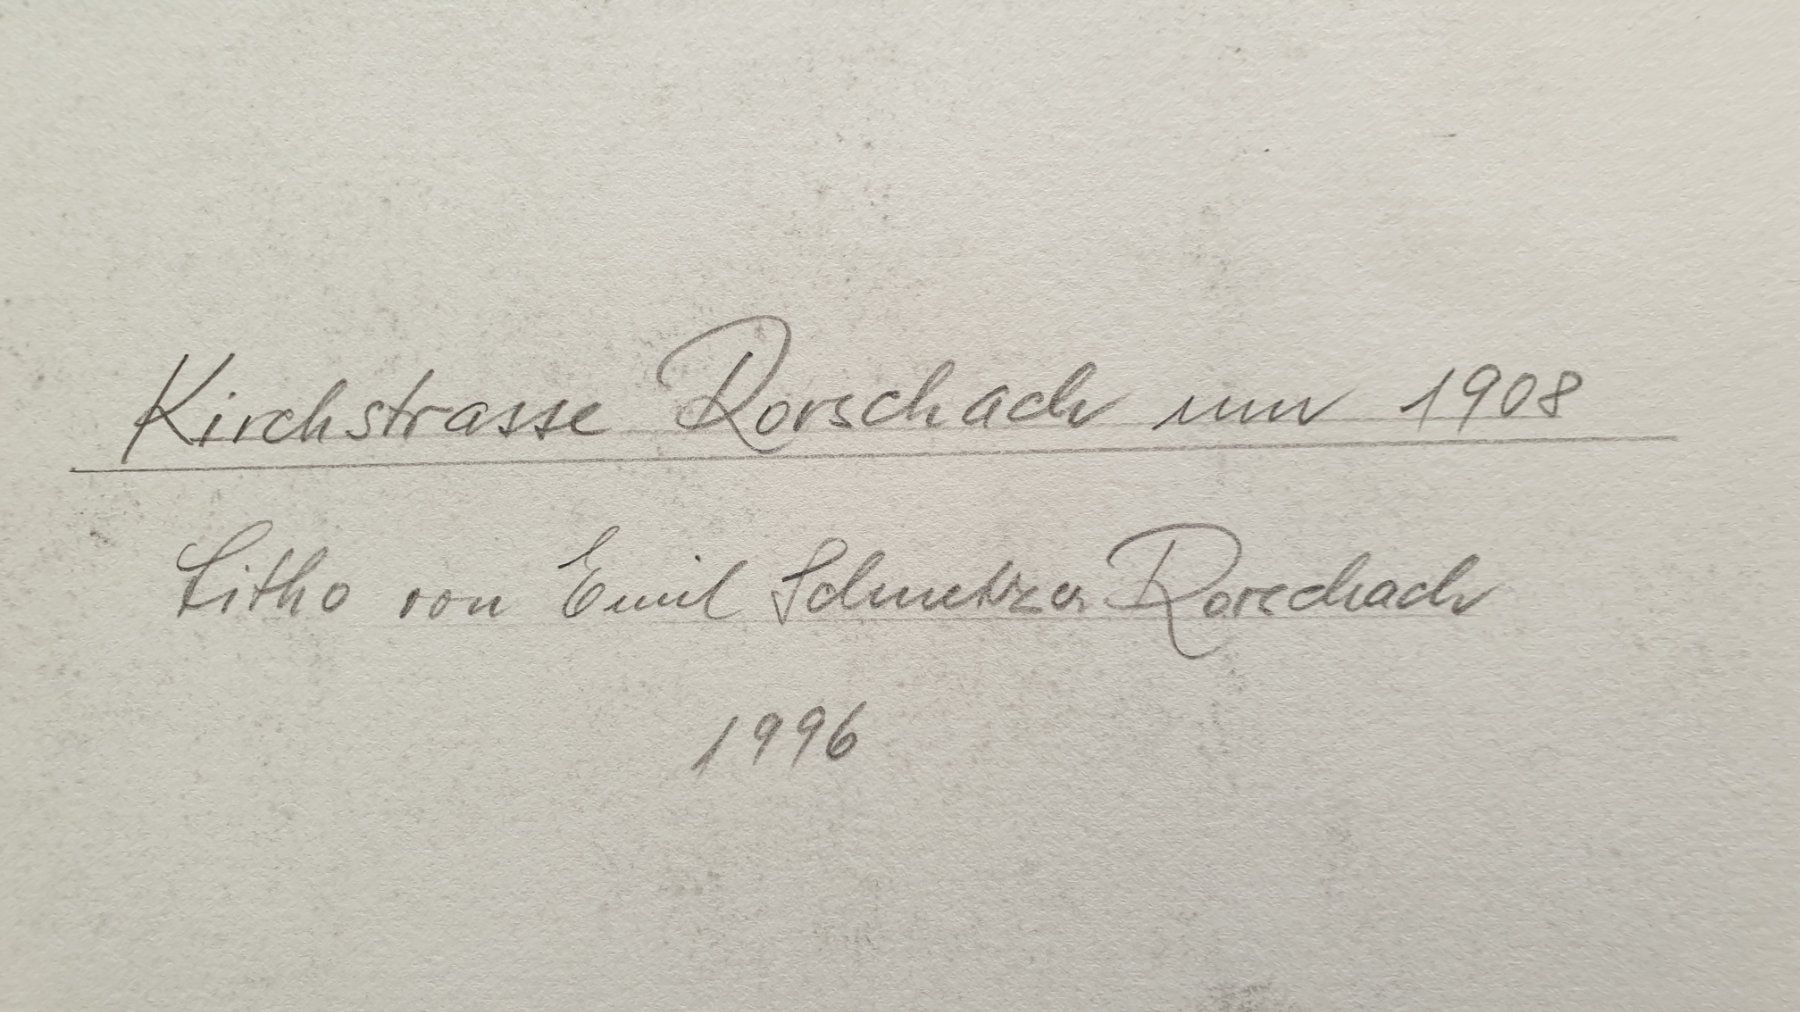 Kirchstrasse Rorschach um 1908
Litho von Emil Rorschach
1996